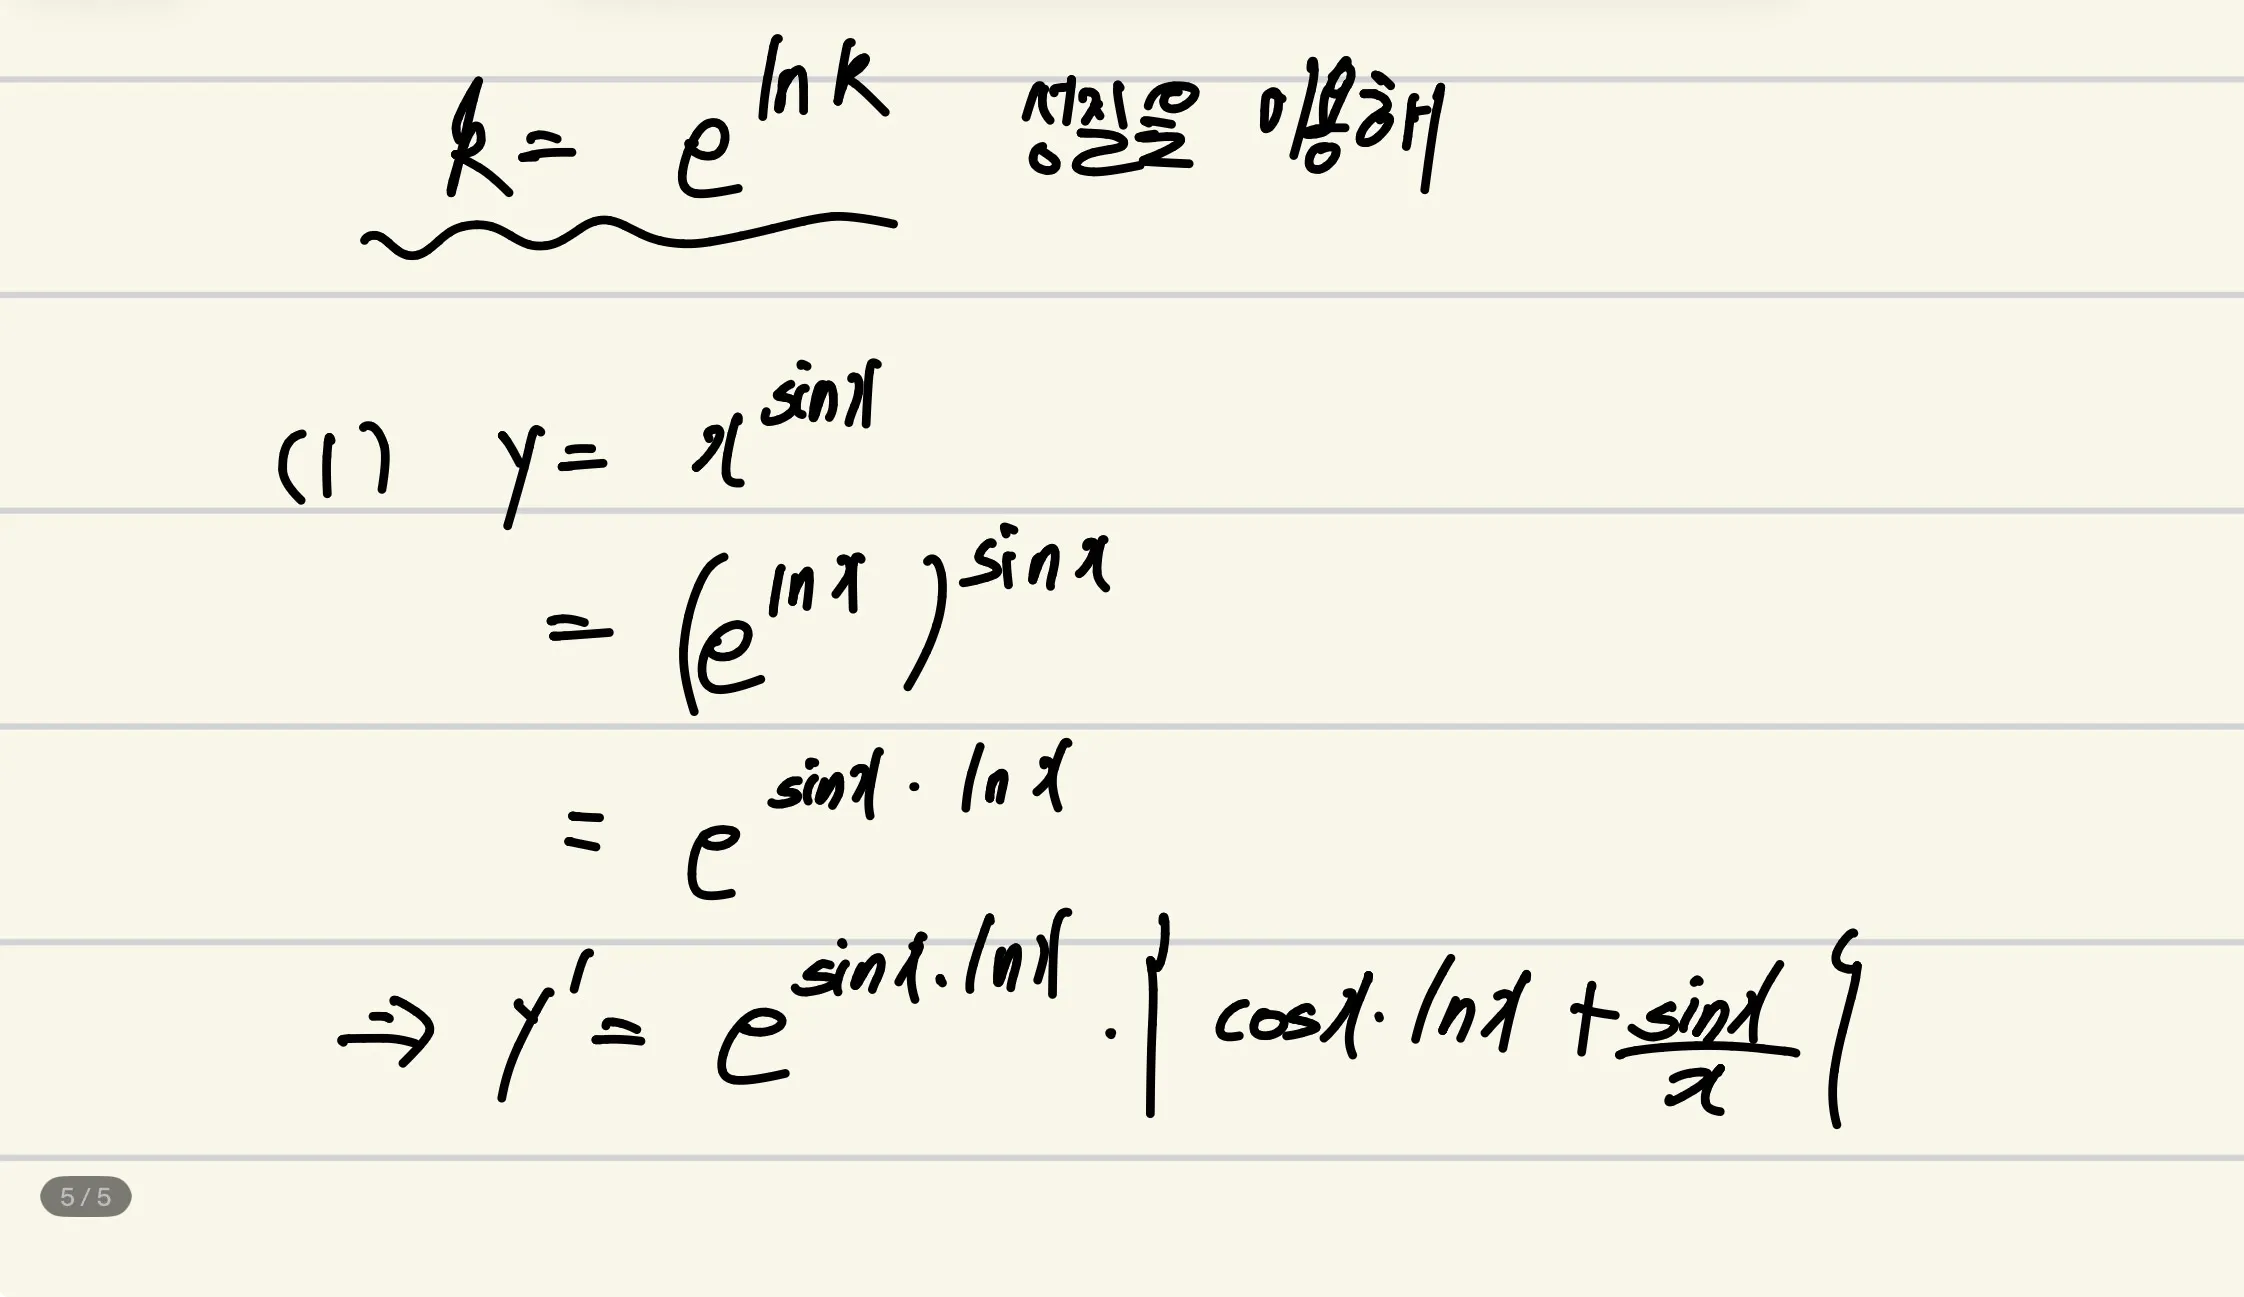 k = e^{ln k} 성질을 이용해
(1) y = x^{sin x}
= (e^{ln x})^{sin x}
= e^{sin x · ln x}
⇒ y' = e^{sin x · ln x} · { cos x · ln x + \frac{sin x}{x} }
5 / 5